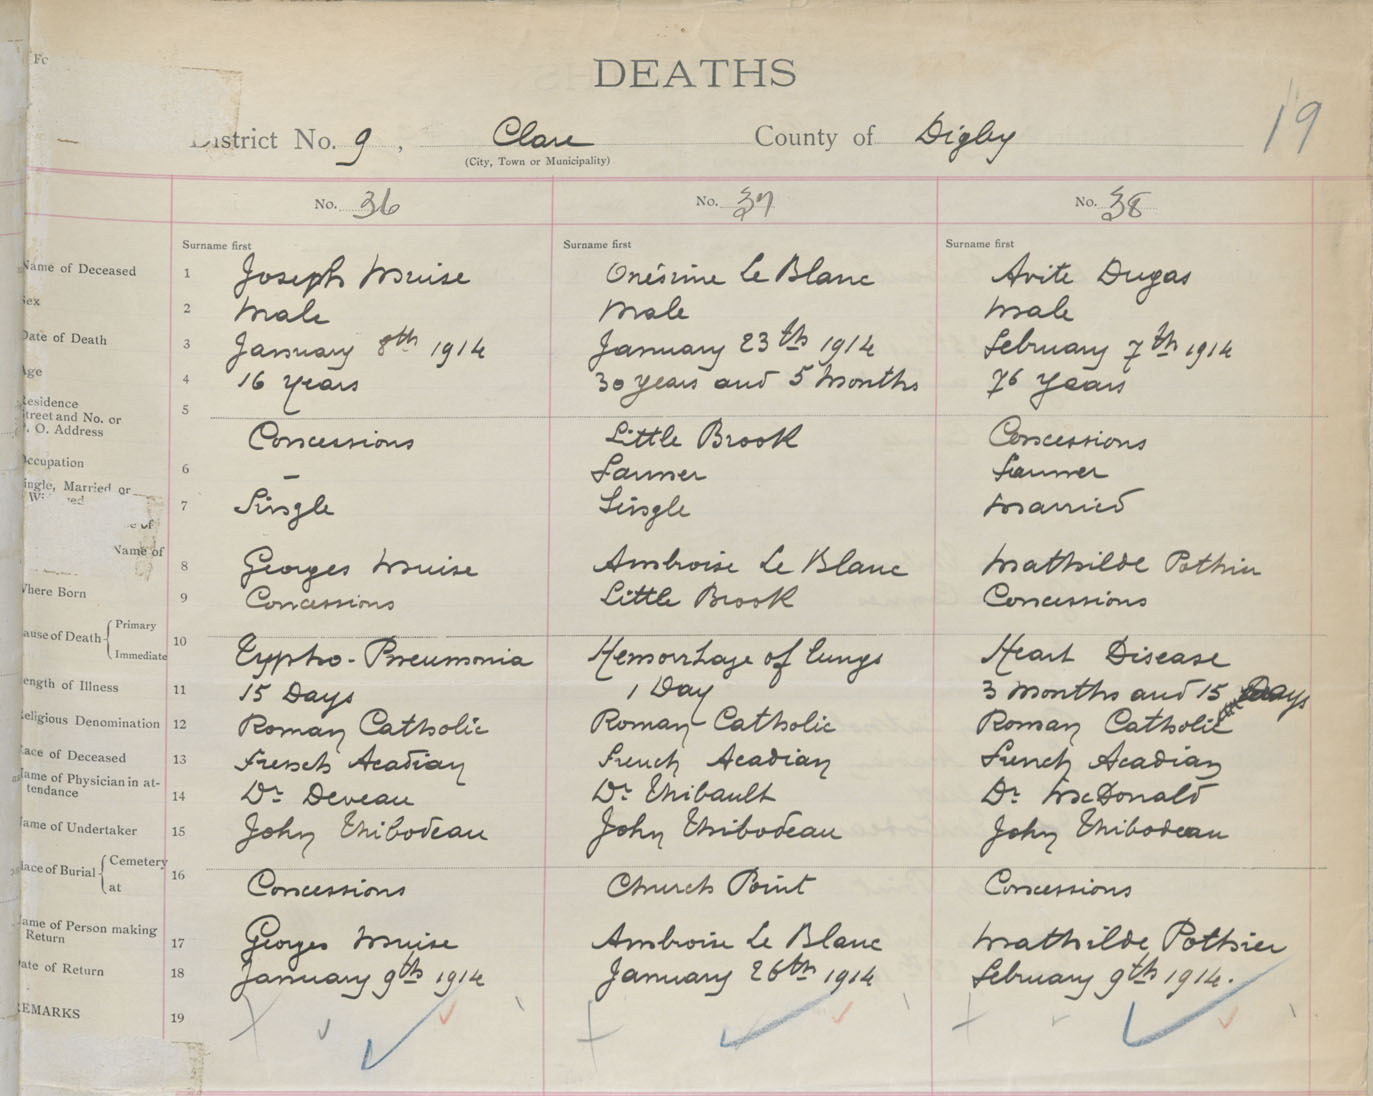 DEATHS
19
District No. 9, Clare County of Digby
(City, Town or Municipality)
No. 36 No. 37 No. 38
Surname first Surname first Surname first
Name of Deceased 1 Joseph Muise Onésime Le Blanc Avite Dugas
Sex 2 Male Male Male
Date of Death 3 January 8th 1914 January 23th 1914 February 7th 1914
Age 4 16 years 30 years and 5 Months 76 years
Residence
Street and No. or 5
P. O. Address Concessions Little Brook Concessions
Occupation 6 – Farmer Farmer
Single, Married or
Widowed 7 Single Single Married
Name of 8 Georges Muise Ambroise Le Blanc Mathilde Pothier
Where Born 9 Concessions Little Brook Concessions
Cause of Death { Primary 10
Immediate Typho-Pneumonia Hemorrhage of lungs Heart Disease
Length of Illness 11 15 Days 1 Day 3 Months and 15 Days
Religious Denomination 12 Roman Catholic Roman Catholic Roman Catholic
Race of Deceased 13 French Acadian French Acadian French Acadian
Name of Physician in at-
tendance 14 Dr Deveau Dr Thibault Dr McDonald
Name of Undertaker 15 John Thibodeau John Thibodeau John Thibodeau
Place of Burial { Cemetery 16
at Concessions Church Point Concessions
Name of Person making
Return 17 Georges Muise Ambroise Le Blanc Mathilde Pothier
Date of Return 18 January 9th 1914 January 26th 1914 February 9th 1914.
REMARKS 19